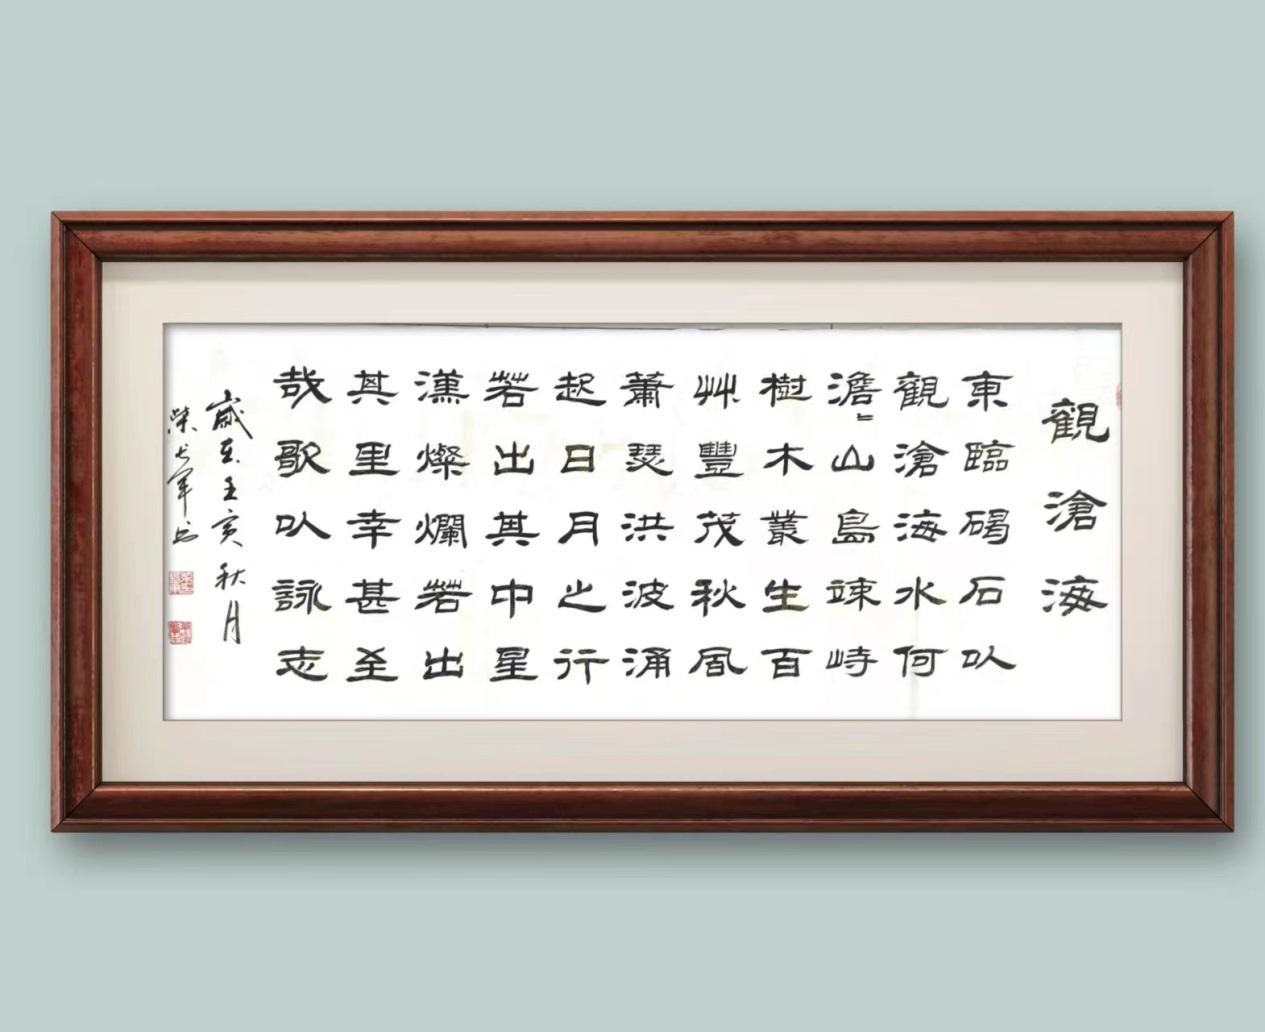 觀滄海
東臨碣石以
觀滄海水何
澹〻山島竦峙
樹木叢生百
艸豐茂秋風
蕭瑟洪波涌
起日月之行
若出其中星
漢燦爛若出
其里幸甚至
哉歌以詠志
歲在壬寅秋月